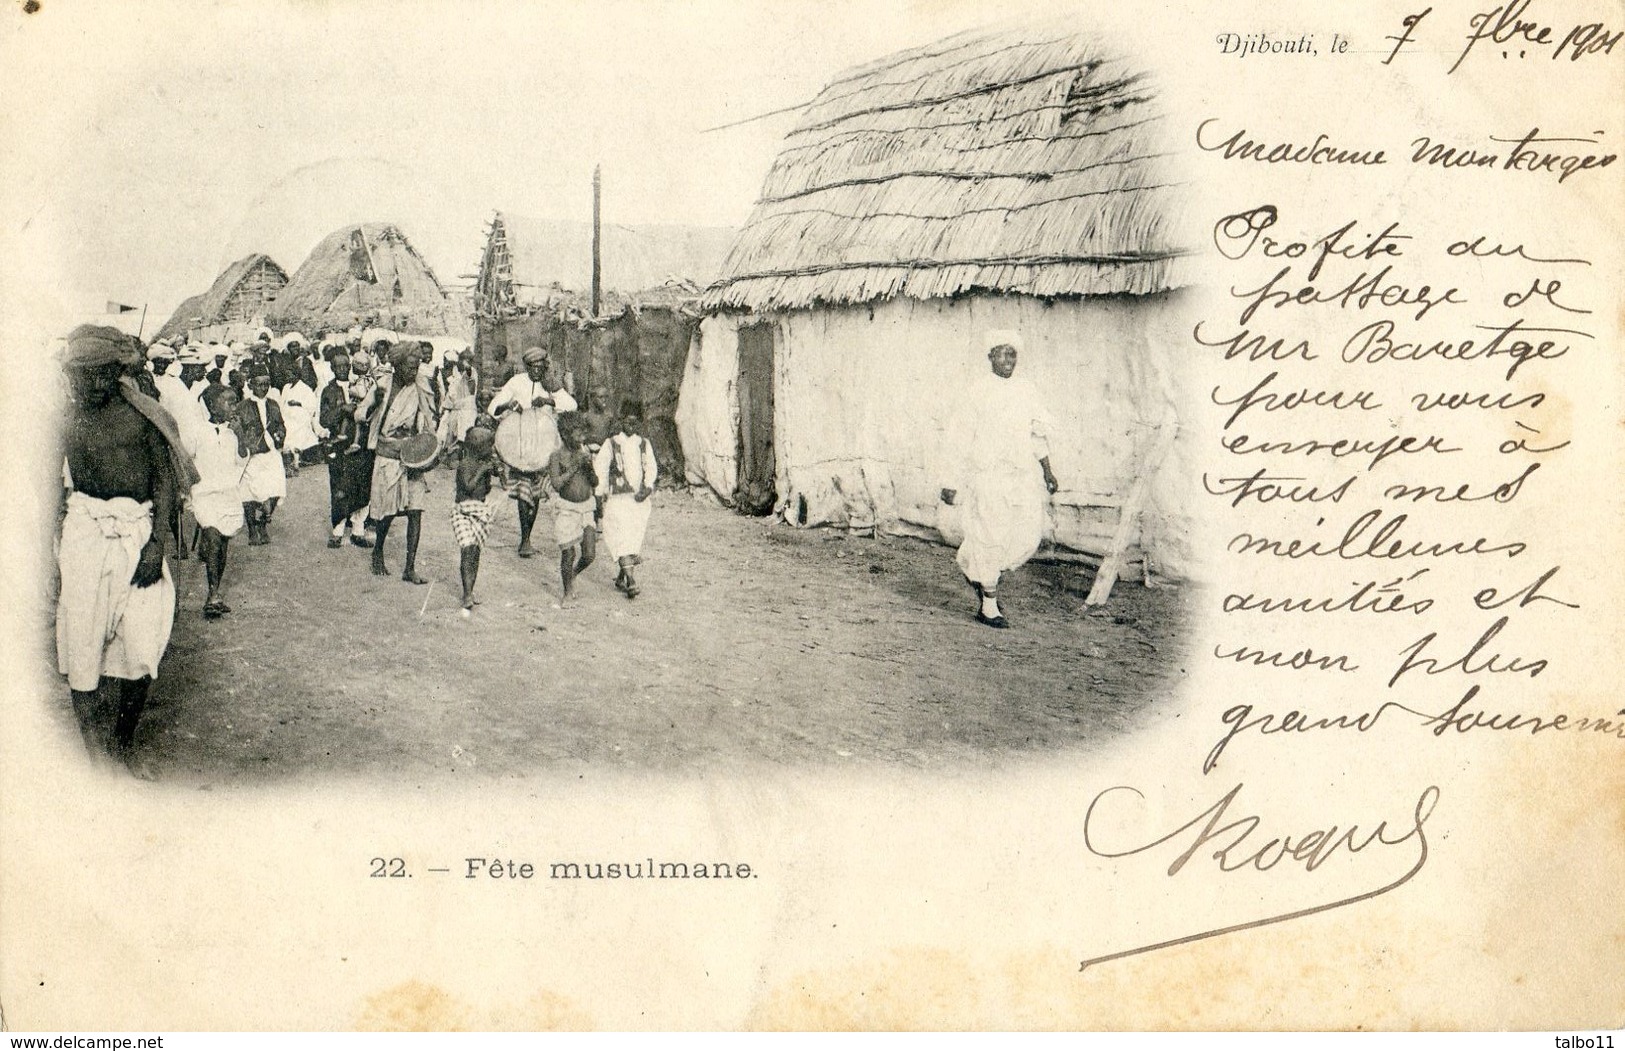 Djibouti, le 7 7bre 1901
Madame Montargès
Profite du
passage de
Mr Baretge
pour vous
envoyer à
tous mes
meilleures
amitiés et
mon plus
grand souvenir
Roques
22. — Fête musulmane.
www.delcampe.net
talbo11